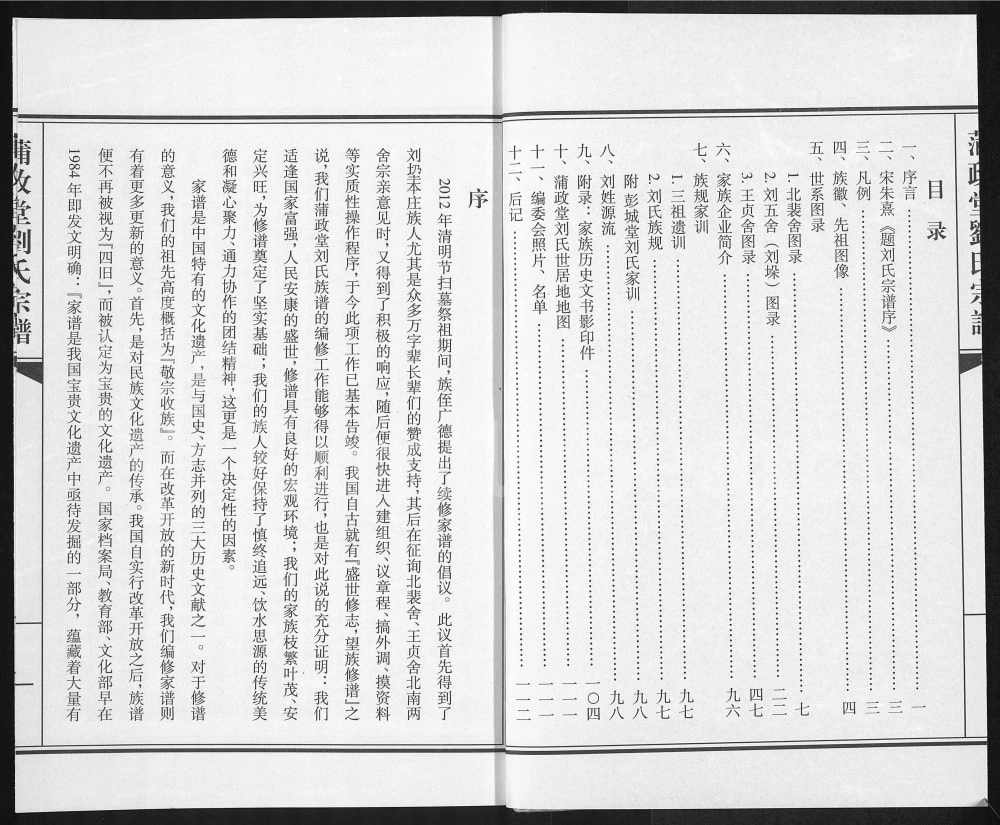 蒲政堂劉氏宗譜
目录
一、序言……………一
二、宋朱熹《题刘氏宗谱序》……………三
三、凡例……………三
四、族徽、先祖图像……………四
五、世系图录
1. 北裴舍图录……………七
2. 刘五舍（刘垛）图录……………二二
3. 王贞舍图录……………四七
六、家族企业简介……………九六
七、族规家训
1. 三祖遗训……………九七
2. 刘氏族规……………九七
附 彭城堂刘氏家训……………九八
八、刘姓源流……………九八
九、附录：家族历史文书影印件……………一〇四
十、蒲政堂刘氏世居地地图……………一一一
十一、编委会照片、名单……………一一一
十二、后记……………一一二
序
2012年清明节扫墓祭祖期间，族侄广德提出了续修家谱的倡议。此议首先得到了
刘垛本庄族人尤其是众多万字辈长辈们的赞成支持，其后在征询北裴舍、王贞舍北南两
舍宗亲意见时，又得到了积极的响应，随后便很快进入建组织、议章程、搞外调、摸资料
等实质性操作程序，于今此项工作已基本告竣。我国自古就有『盛世修志，望族修谱』之
说，我们蒲政堂刘氏族谱的编修工作能够得以顺利进行，也是对此说的充分证明：我们
适逢国家富强，人民安康的盛世，修谱具有良好的宏观环境；我们的家族枝繁叶茂、安
定兴旺，为修谱奠定了坚实基础；我们的族人较好保持了慎终追远、饮水思源的传统美
德和凝心聚力、通力协作的团结精神，这更是一个决定性的因素。
家谱是中国特有的文化遗产，是与国史、方志并列的三大历史文献之一。对于修谱
的意义，我们的祖先高度概括为『敬宗收族』。而在改革开放的新时代，我们编修家谱则
有着更多更新的意义。首先，是对民族文化遗产的传承。我国自实行改革开放之后，族谱
便不再被视为『四旧』，而被认定为宝贵的文化遗产。国家档案局、教育部、文化部早在
1984年即发文明确：『家谱是我国宝贵文化遗产中亟待发掘的一部分，蕴藏着大量有
蒲政堂劉氏宗譜